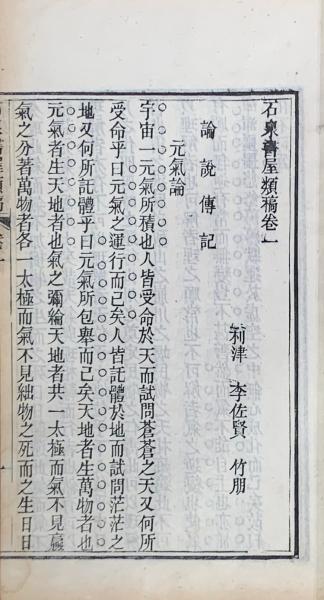 石泉書屋類稿卷一
利津 李佐賢 竹朋
論說傳記
元氣論
宇宙一元氣所積也人皆受命於天而試問蒼蒼之天又何所
受命乎曰元氣之運行而已矣人皆託體於地而試問茫茫之
地又何所託體乎曰元氣所包舉而已矣天地者生萬物者也
元氣者生天地者也氣之彌綸天地者共一太極而氣不見贏
氣之分著萬物者各一太極而氣不見絀物之死而之生日日